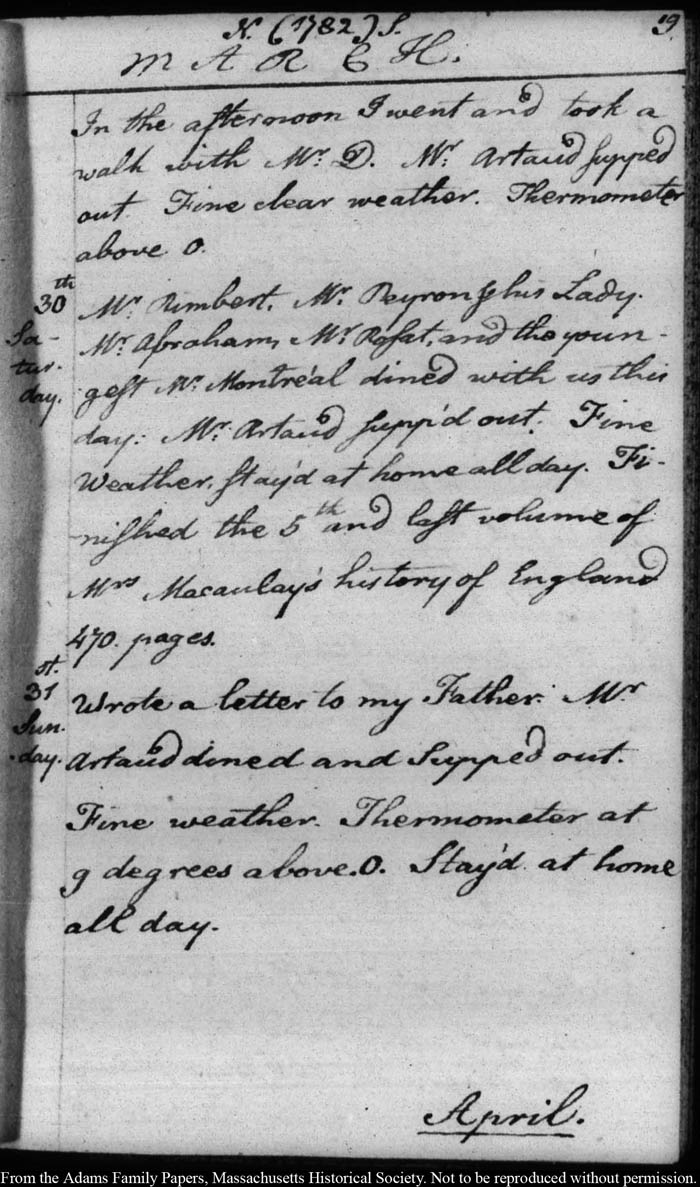 N. (1782) S. 19
MARCH.
In the afternoon I went and took a
walk with Mr. D. Mr. Artaud supped
out. Fine clear weather. Thermometer
above 0.
30th Mr. Rimbert, Mr. Peyron & his Lady.
Sa- Mr. Abraham, Mr. Rosat, and the youn-
tur- gest Mr. Montréal dined with us this
day. day. Mr. Artaud supp'd out. Fine
Weather, stay'd at home all day. Fi-
nished the 5th and last volume of
Mrs Macaulay's history of England
470. pages.
31st. Wrote a letter to my Father. Mr
Sun- Artaud dined and Supped out.
day. Fine weather. Thermometer at
9 degrees above.0. Stay'd at home
all day.
April.
From the Adams Family Papers, Massachusetts Historical Society. Not to be reproduced without permission.